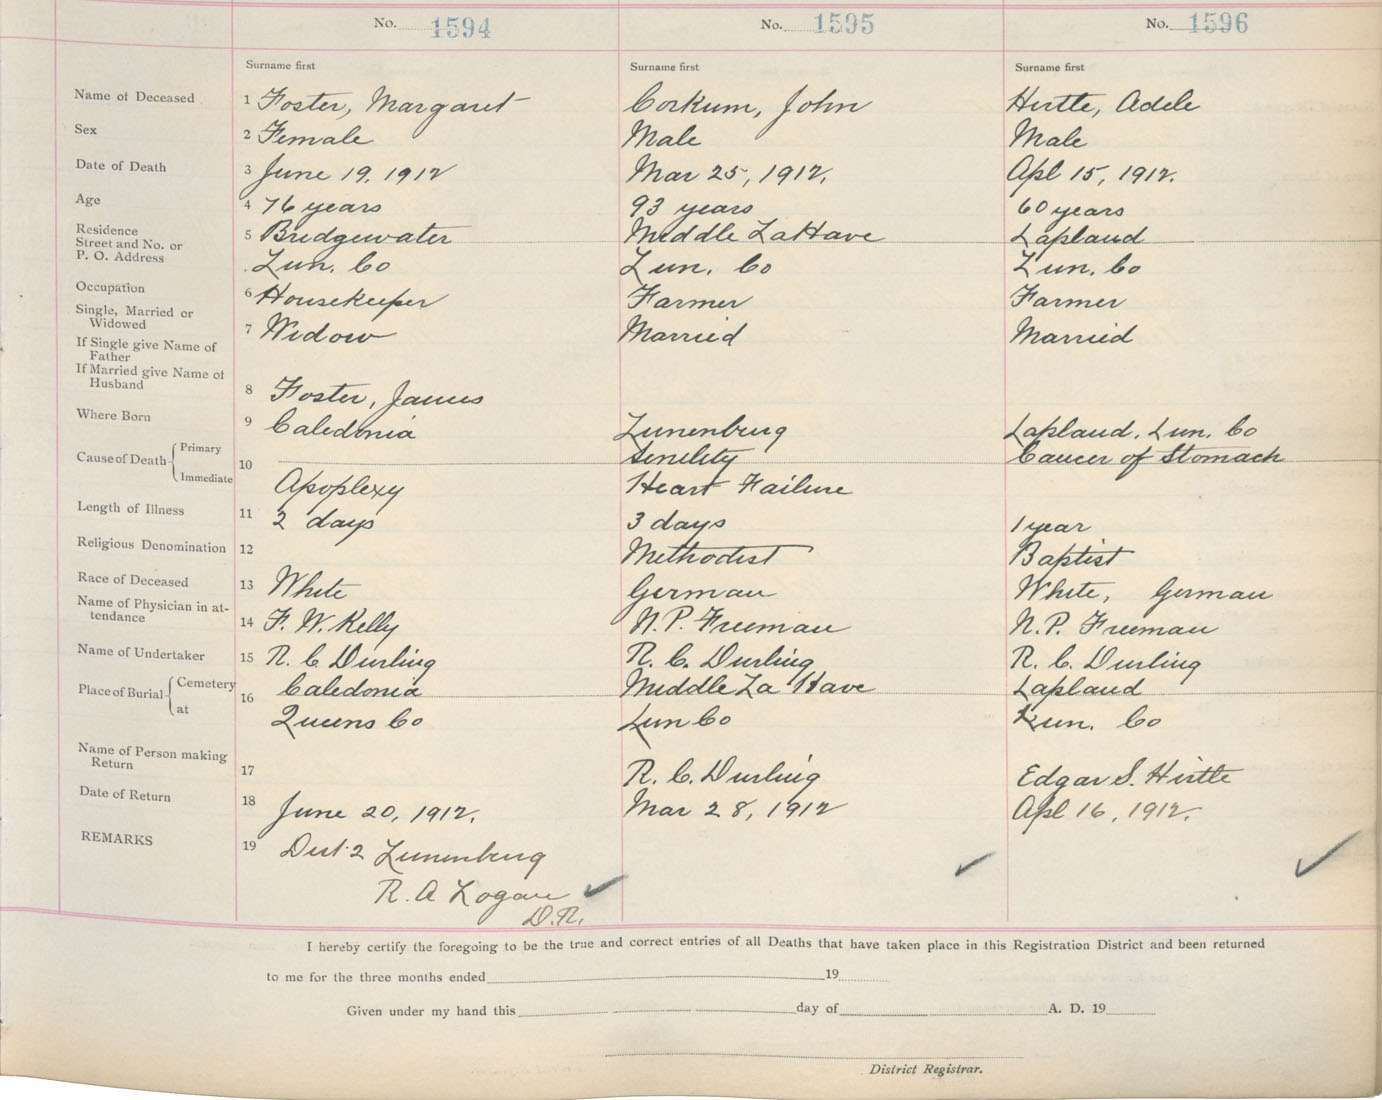 No. 1594 No. 1595 No. 1596
Surname first Surname first Surname first
Name of Deceased 1 Foster, Margaret Corkum, John Hirtle, Adele
Sex 2 Female Male Male
Date of Death 3 June 19, 1912 Mar 25, 1912. Apl 15, 1912.
Age 4 76 years 93 years 60 years
Residence
Street and No. or 5 Bridgewater Middle LaHave Lapland
P. O. Address Lun. Co Lun. Co Lun. Co
Occupation 6 Housekeeper Farmer Farmer
Single, Married or
Widowed 7 Widow Married Married
If Single give Name of
Father
If Married give Name of
Husband 8 Foster, James
Where Born 9 Caledonia Lunenburg Lapland, Lun. Co
Cause of Death Primary Senility Cancer of Stomach
10
Immediate Apoplexy Heart Failure
Length of Illness 11 2 days 3 days 1 year
Religious Denomination 12 Methodist Baptist
Race of Deceased 13 White German White, German
Name of Physician in at-
tendance 14 F. W. Kelly N. P. Freeman N. P. Freeman
Name of Undertaker 15 R. C Durling R. C. Durling R. C. Durling
Place of Burial Cemetery 16 Caledonia Middle La Have Lapland
at Queens Co Lun Co Lun. Co
Name of Person making
Return 17 R. C. Durling Edgar S. Hirtle
Date of Return 18 June 20, 1912. Mar 28, 1912 Apl 16, 1912.
REMARKS 19 Dist. 2 Lunenburg
R. A Logan
D.R.
I hereby certify the foregoing to be the true and correct entries of all Deaths that have taken place in this Registration District and been returned
to me for the three months ended 19
Given under my hand this day of A. D. 19
District Registrar.